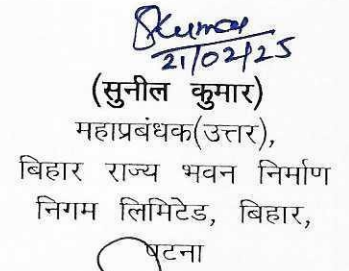 SKumar
21/02/25
(सुनील कुमार)
महाप्रबंधक(उत्तर),
बिहार राज्य भवन निर्माण
निगम लिमिटेड, बिहार,
पटना